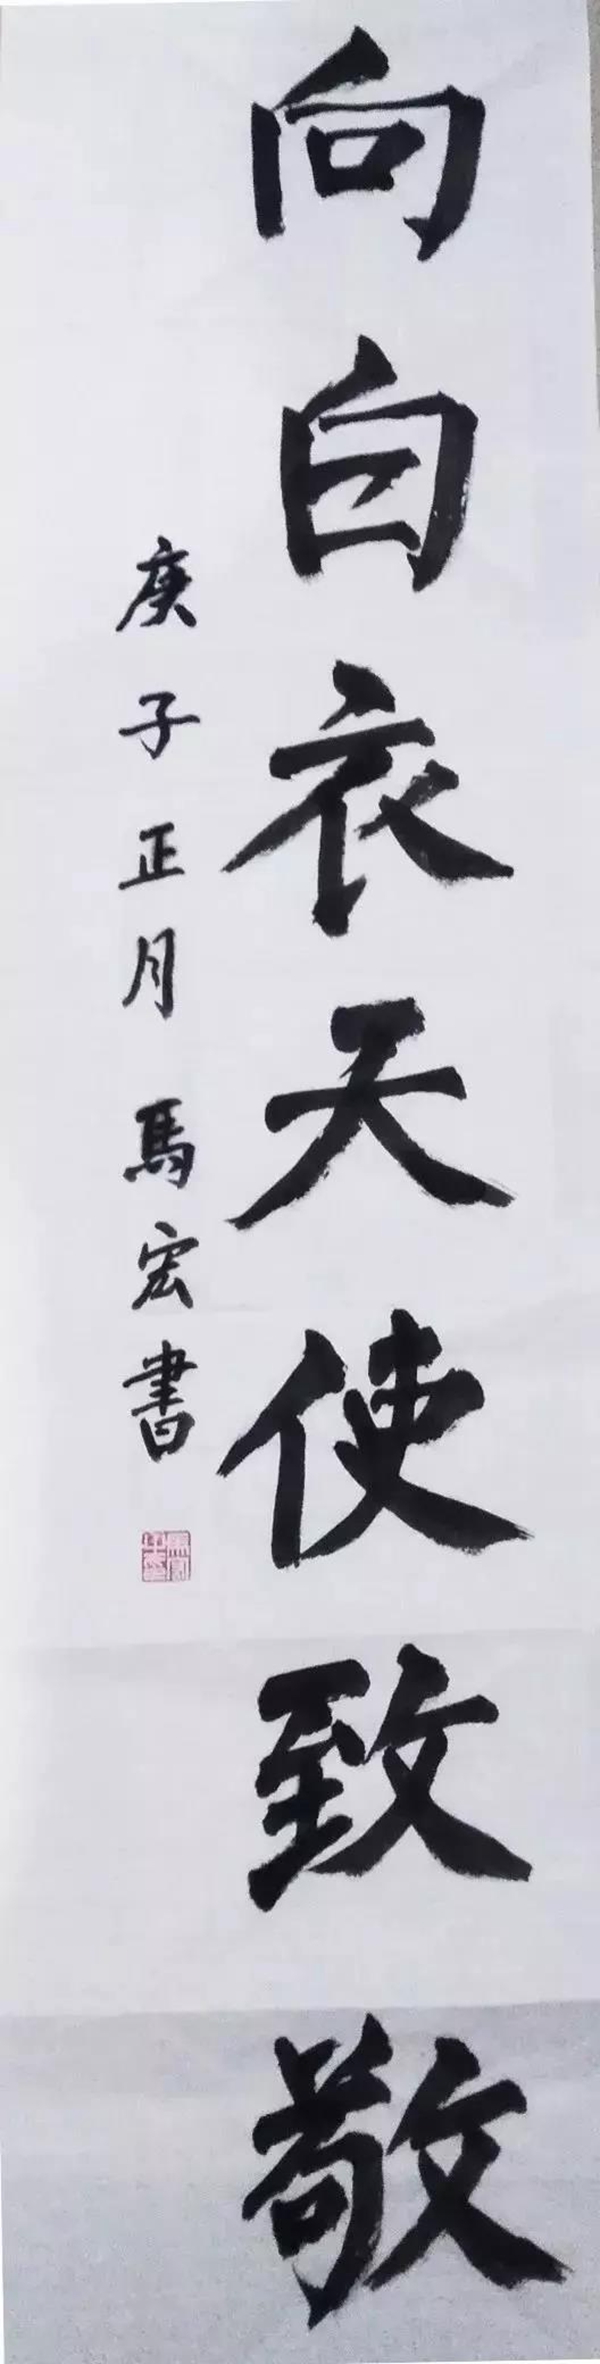 向白衣天使致敬
庚子正月馬宏書